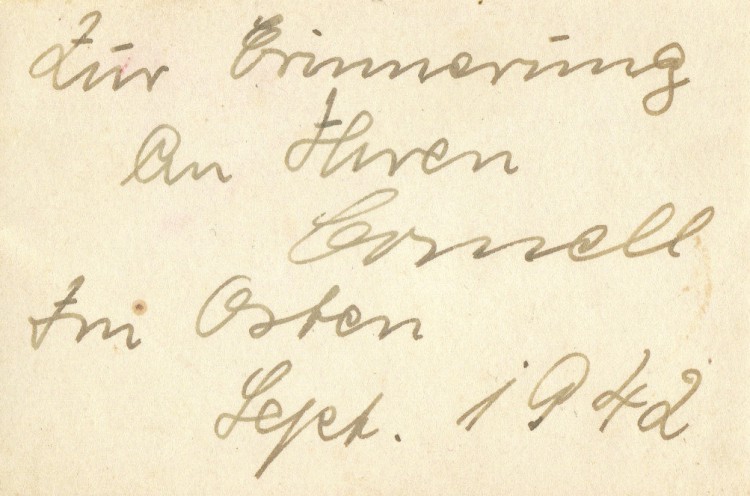 Zur Erinnerung
An Ihren
Cornell
Im Osten
Sept. 1942